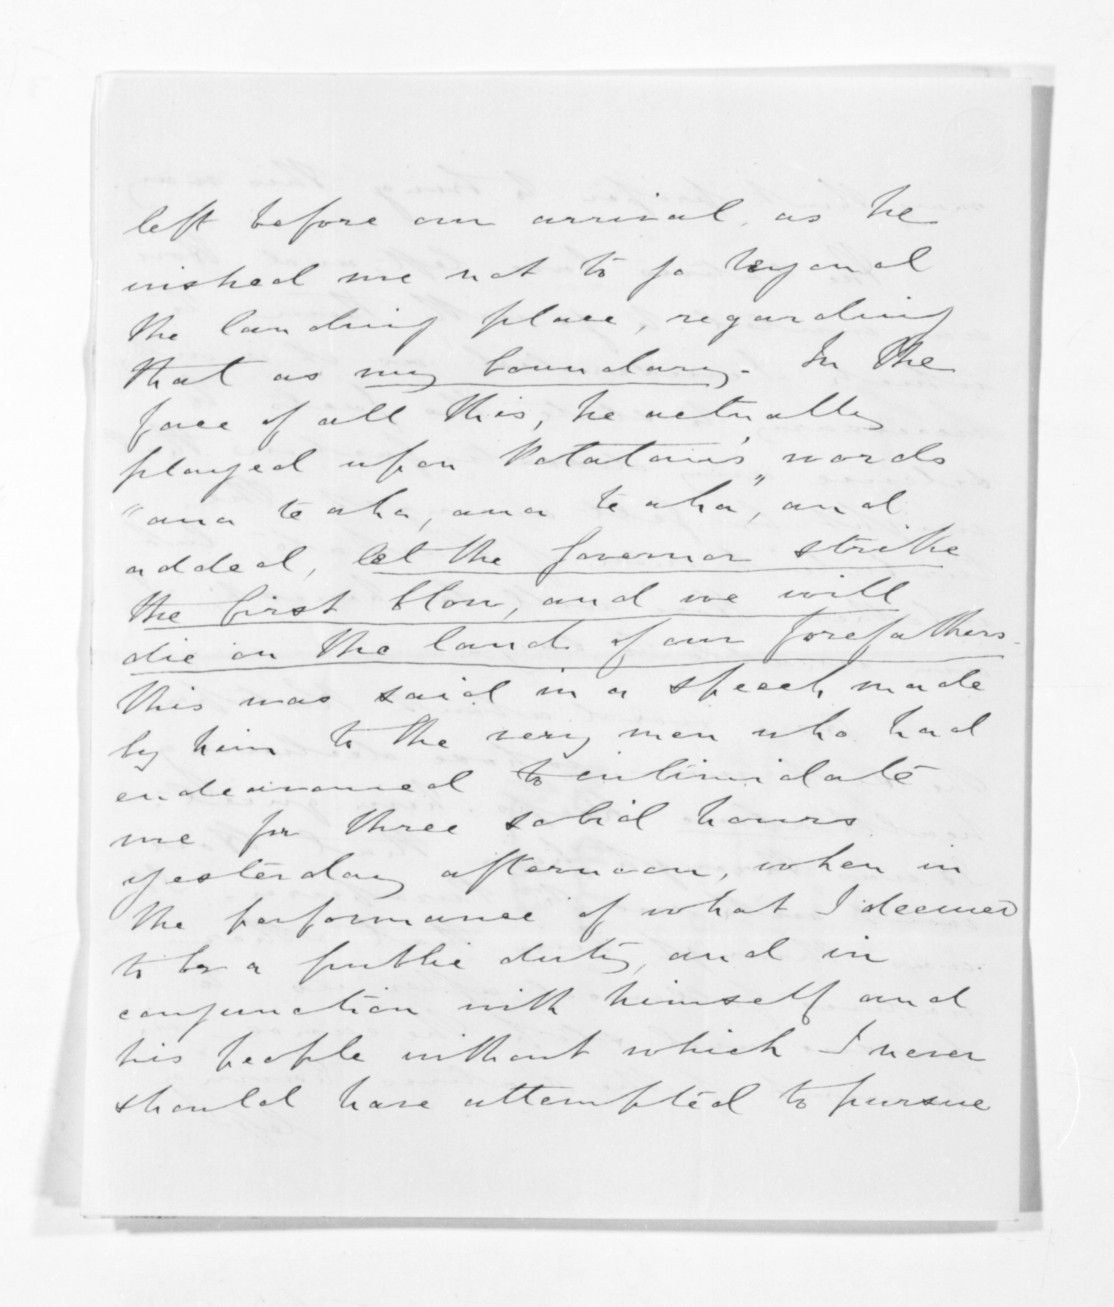 left before our arrival, as he
wished me not to go beyond
the landing place, regarding
that as my boundary. In the
face of all this, he actually
played upon Potatau's words
"ana te aha, ana te aha", and
added, let the Governor strike
the first blow, and we will
die on the land of our forefathers.
This was said in a speech made
by him to the very men who had
endeavoured to intimidate
me for three solid hours
yesterday afternoon, when in
the performance of what I deemed
to be a public duty, and in
conjunction with himself and
his people without which I never
should have attempted to pursue